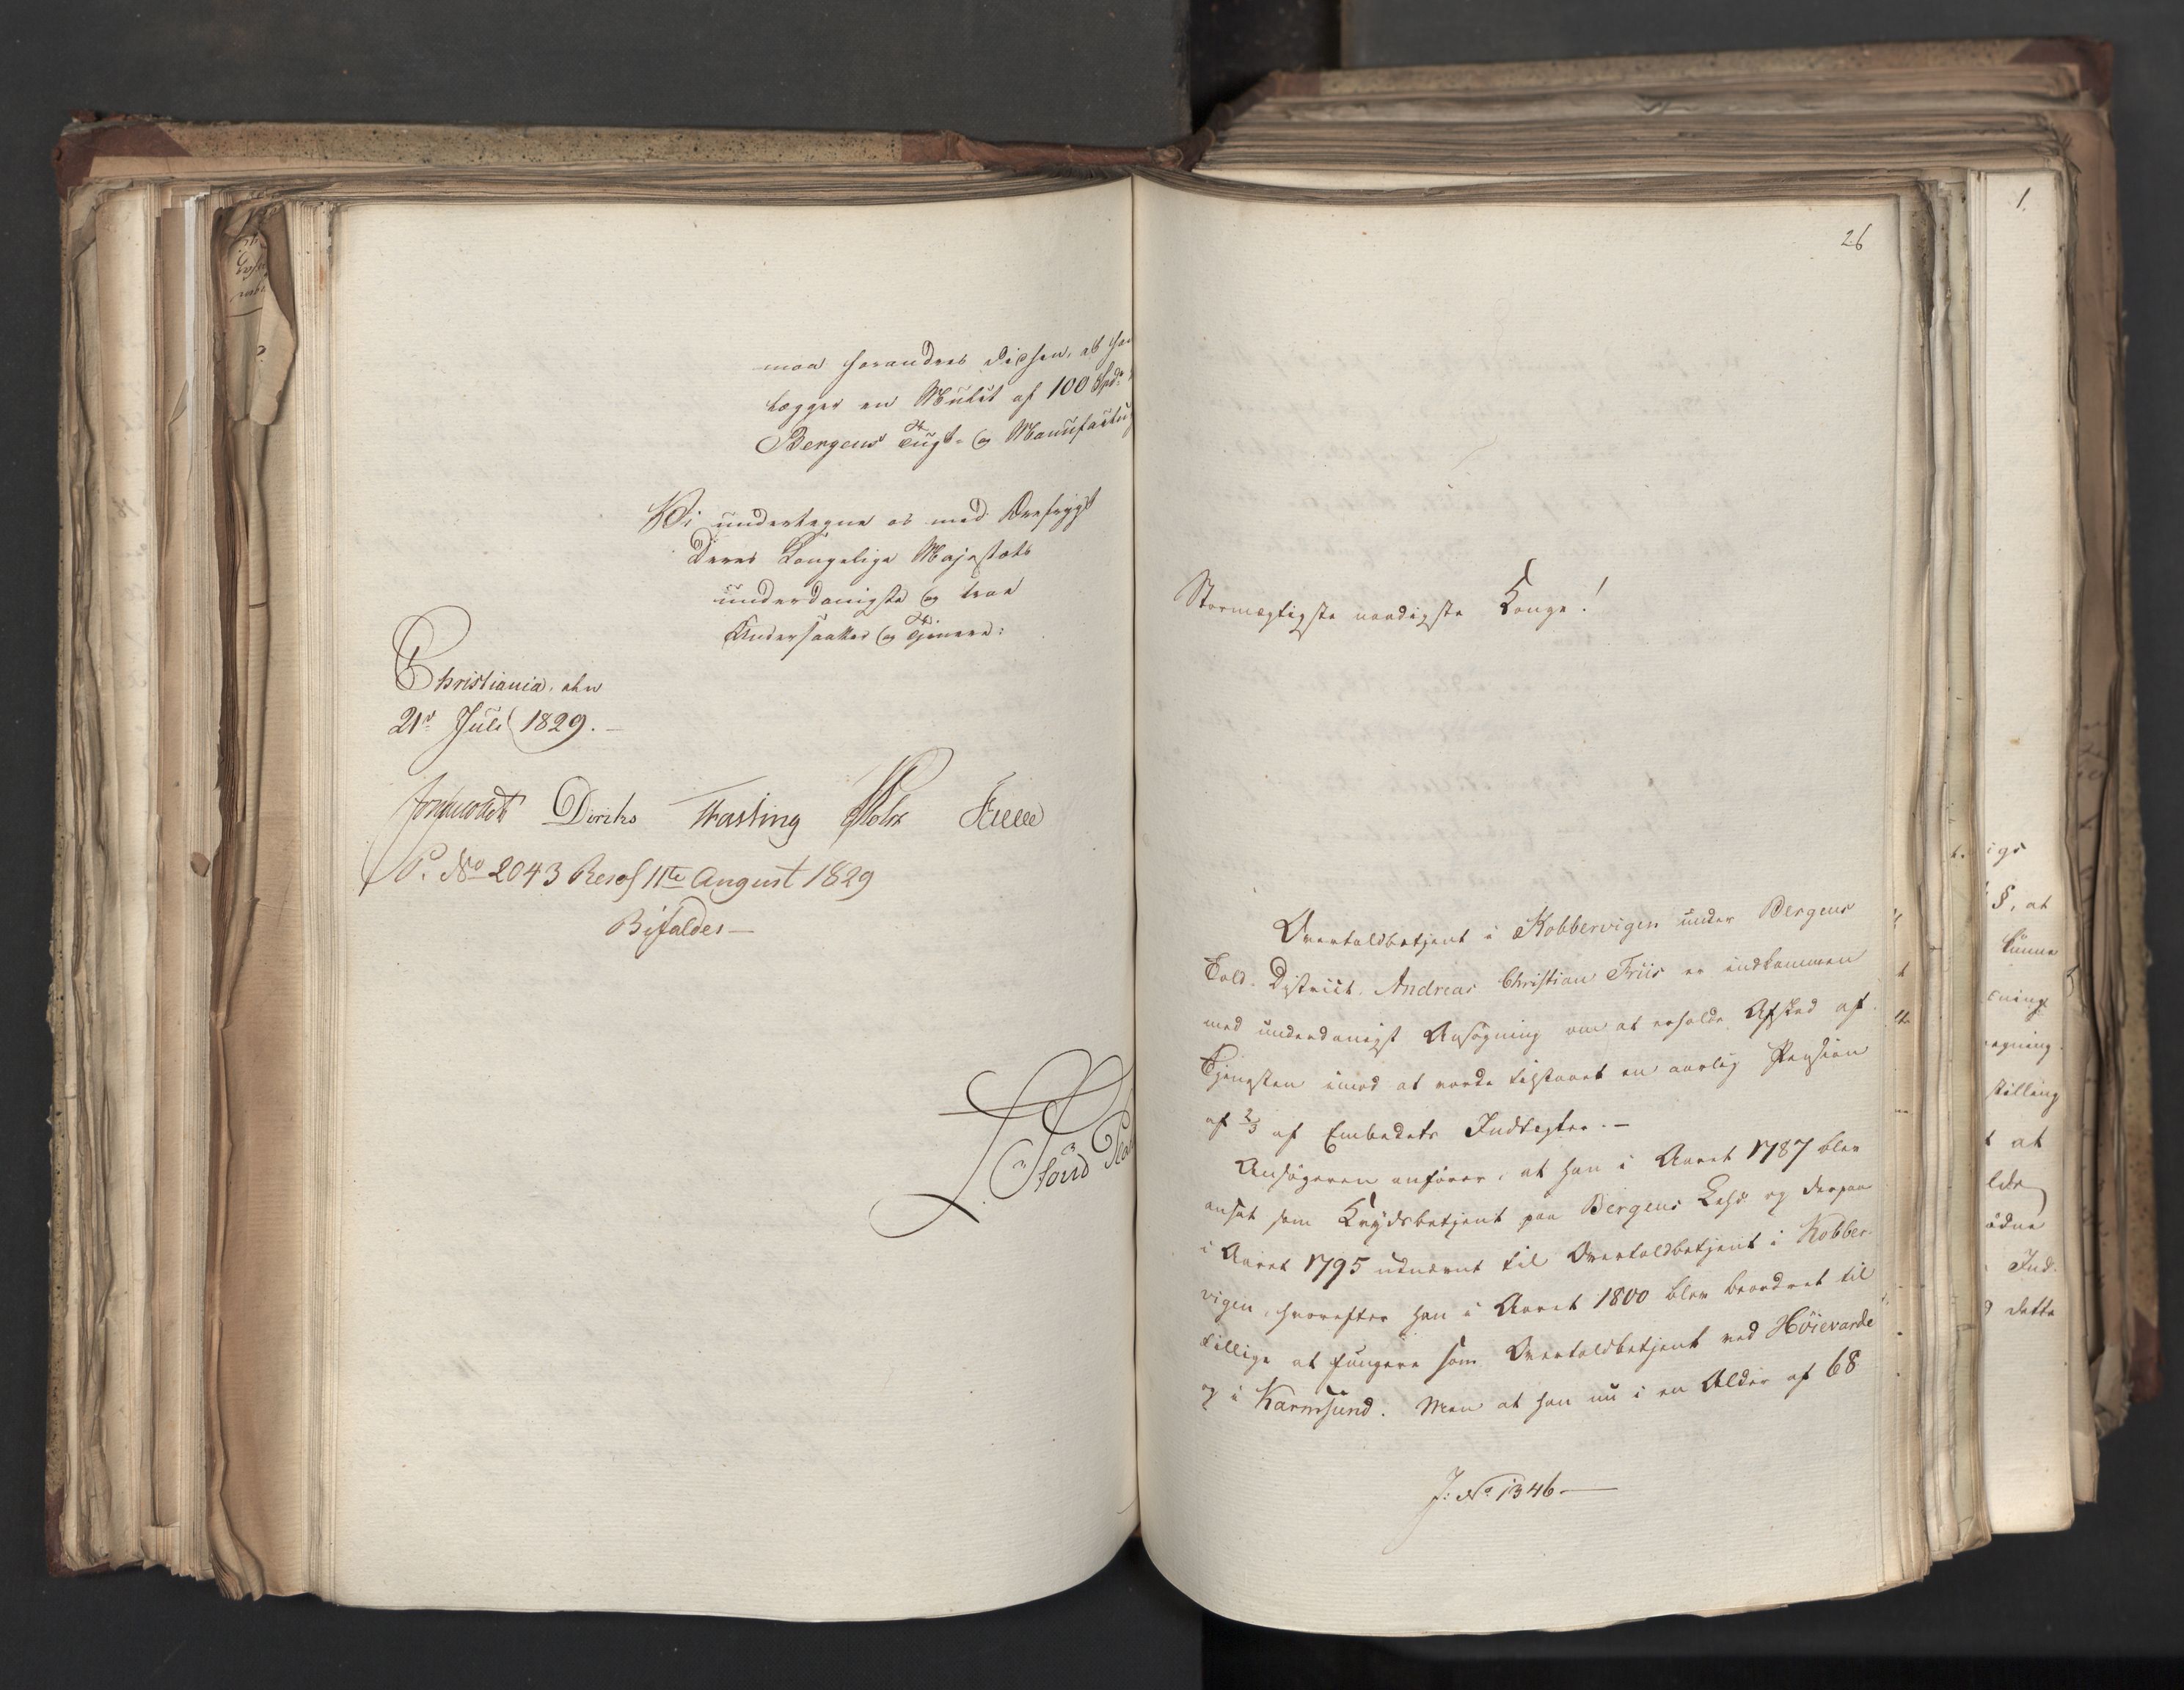 maa forandres dithen, at han
lægger en Mulct af 100 Spd.
Bergens Tugt- og Manufactu
Vi undertegne os med Ærefrygt
Deres Kongelige Majestæts
underdanigste og troe
Undersaatter og Tjenere:
Christiania, den
21d Juli 1829.
Diriks Fasting Holst
P. No 2043 Resol 11te August 1829
Bifaldes
26
Stormægtigste naadigste Konge!
Overtoldbetjent i Kobbervigen under Bergens
Told-District, Andreas Christian Friis er indkommen
med underdanigst Ansøgning om at erholde Afsked af
Tjenesten imod at vorde tilstaaet en aarlig Pension
af 2/3 af Embedets Indtægter.
Ansøgeren anfører, at han i Aaret 1787 blev
ansat som Krydsbetjent paa Bergens Leed og derpaa
i Aaret 1795 udnævnt til Overtoldbetjent i Kobber-
vigen, hvorefter han i Aaret 1800 blev beordret til
tillige at fungere som Overtoldbetjent ved Høievarde
og i Karmsund. Men at han nu i en Alder af 68
J: No 1346.
1.
§, at
kunne
stilling
t at
Ind-
dette